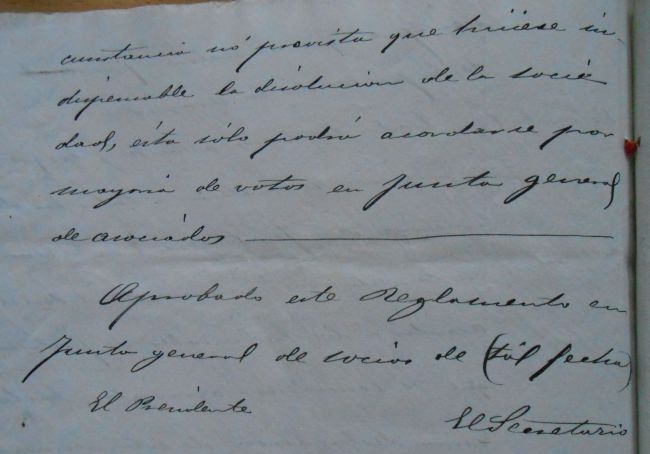 cunstancia nó prevista que hiciese in-
dispensable la disolucion de la socie
dad, ésta sólo podrá acordarse por
mayoria de votos en Junta general
de asociádos
Aprobado este Reglamento en
Junta general de socios de (tál fecha)
El Presidente
El Secretario